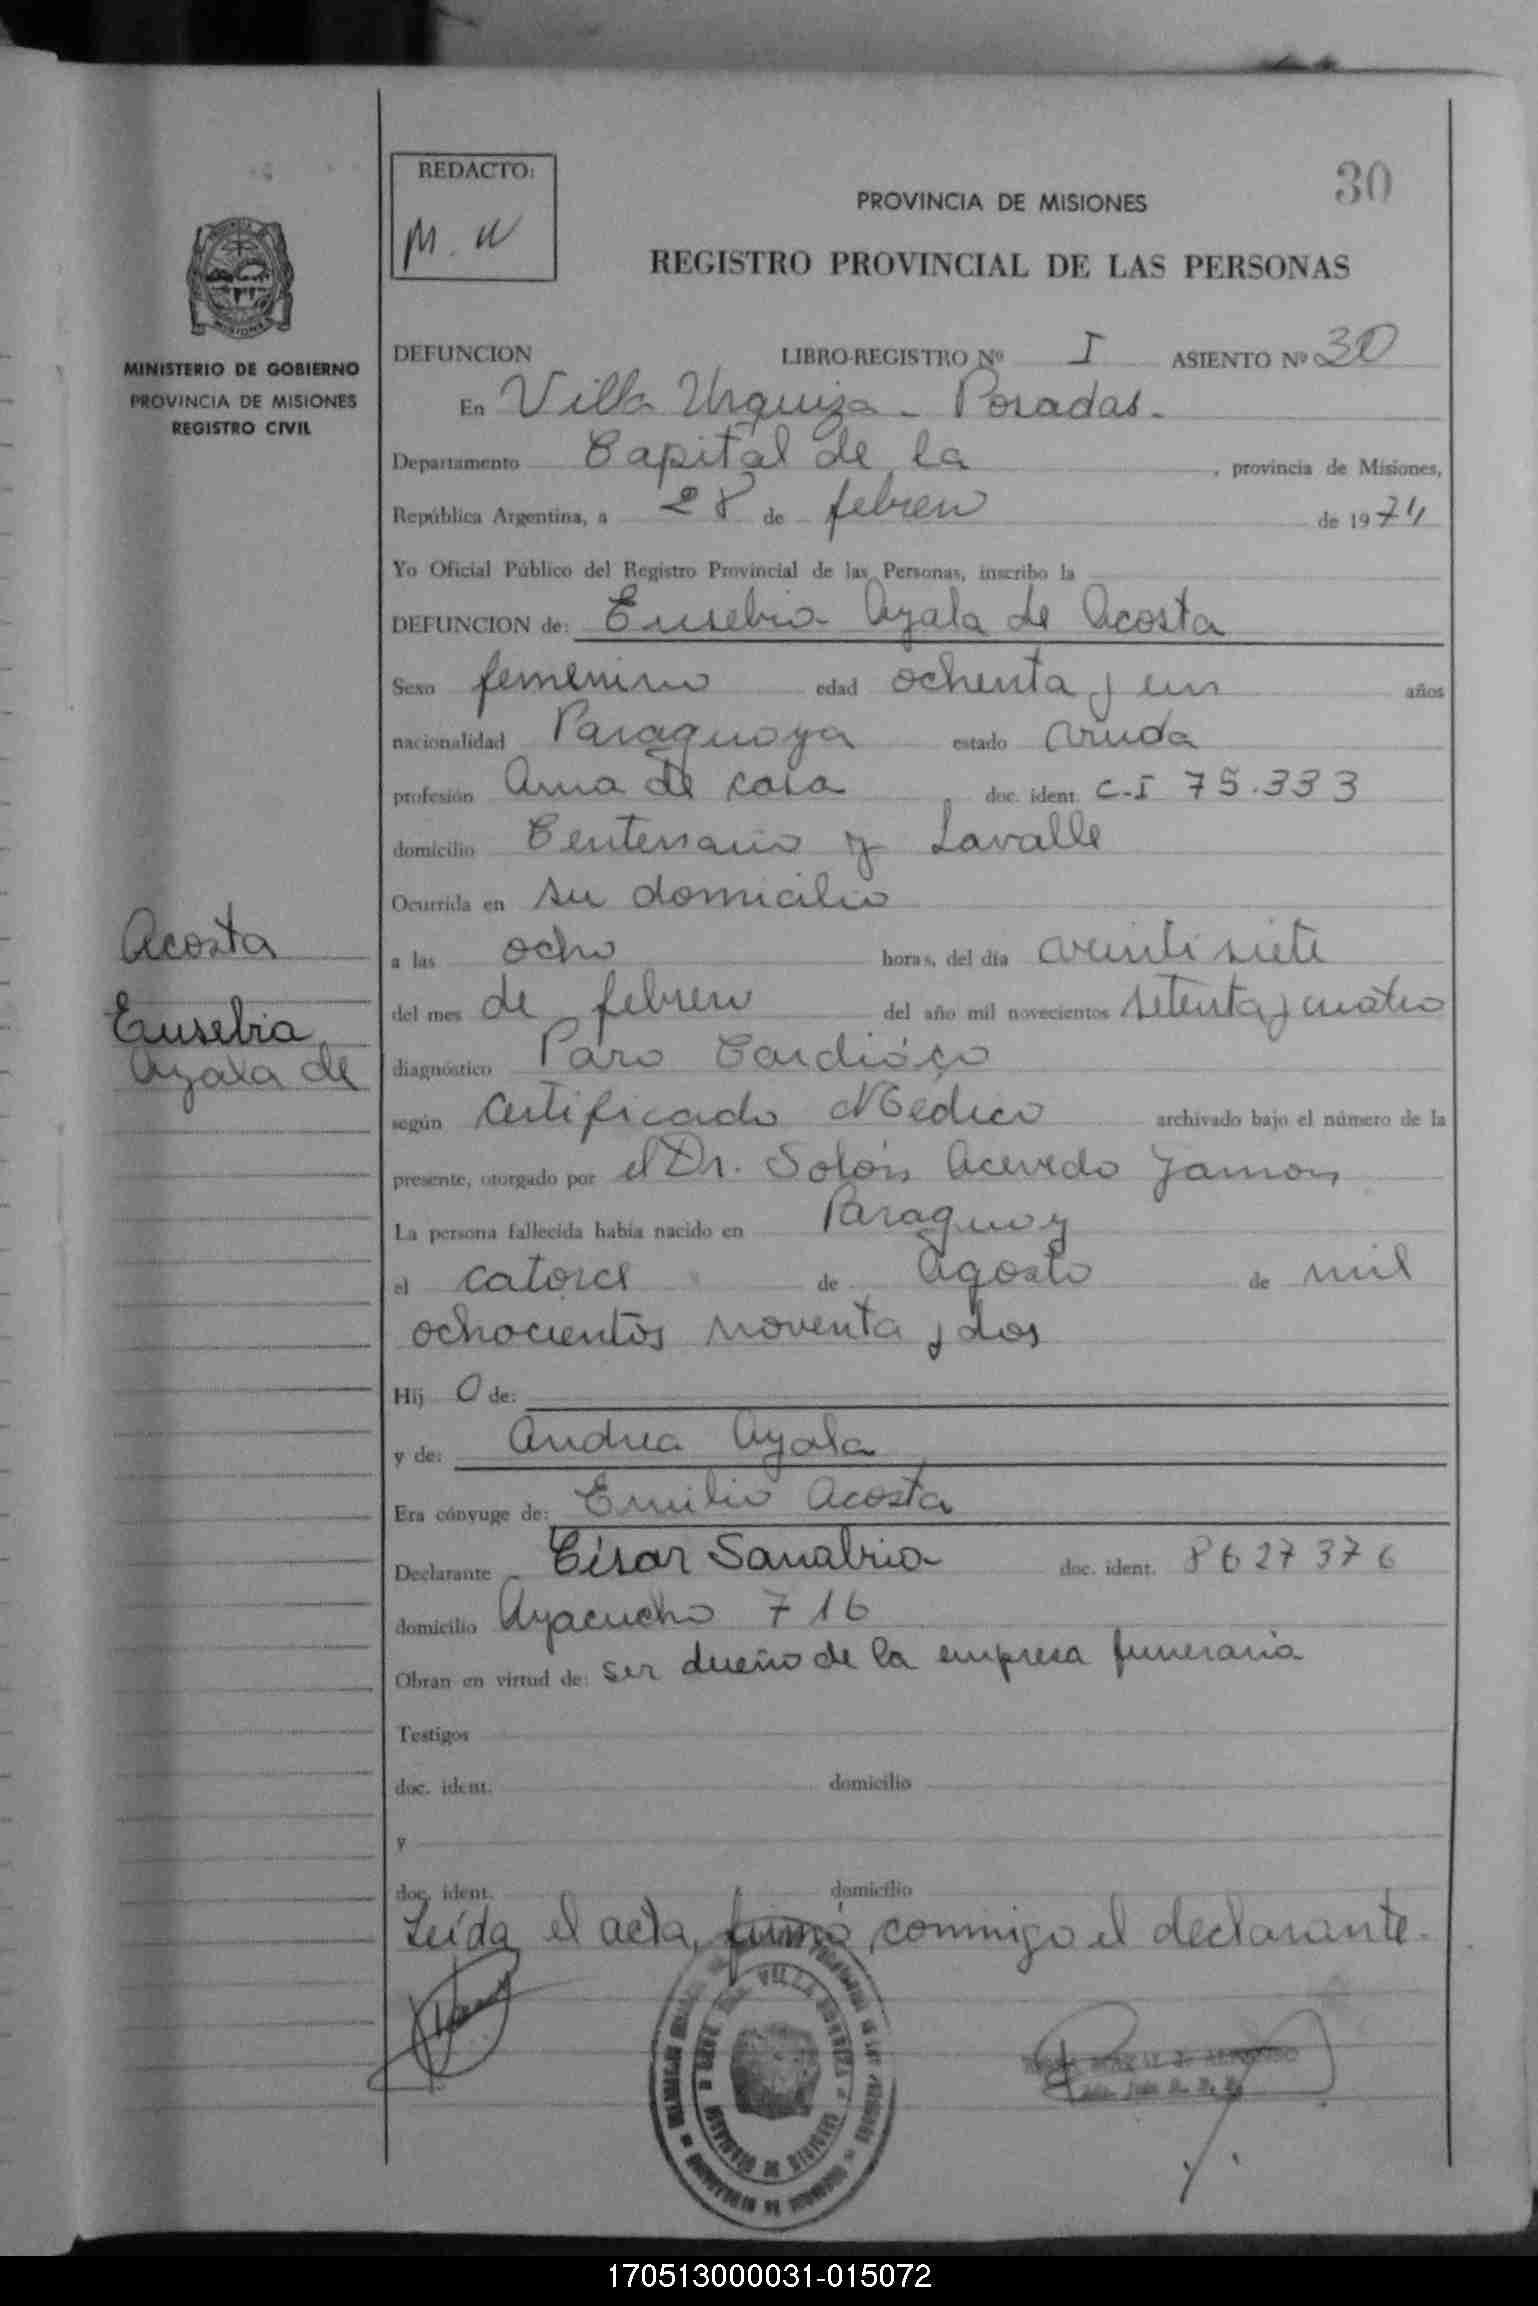 30
REDACTO:
M. W
PROVINCIA DE MISIONES
REGISTRO PROVINCIAL DE LAS PERSONAS
MINISTERIO DE GOBIERNO
PROVINCIA DE MISIONES
REGISTRO CIVIL
DEFUNCION LIBRO-REGISTRO Nº I ASIENTO Nº 30
En Villa Urquiza - Posadas.
Departamento Capital de la , provincia de Misiones,
República Argentina, a 28 de febrero de 1974
Yo Oficial Público del Registro Provincial de las Personas, inscribo la
DEFUNCION de: Eusebia Ayala de Acosta
Sexo femenino edad ochenta y un años
nacionalidad Paraguaya estado viuda
profesión Ama de casa , doc. ident. C.I 75.333
domicilio Centenario y Lavalle
Ocurrida en su domicilio
a las ocho horas, del día veinti siete
del mes de febrero del año mil novecientos setenta y cuatro
diagnóstico Paro Cardiáco
según Certificado Médico archivado bajo el número de la
presente, otorgado por el Dr. Solón Acevedo
La persona fallecida había nacido en Paraguay
el catorce de Agosto de mil
ochocientos noventa y dos
Hij O de:
y de: Andrea Ayala
Era cónyuge de: Emilio Acosta
Declarante César Sanabria doc. ident. 8627376
domicilio Ayacucho 716
Obran en virtud de: ser dueño de la empresa funeraria
Testigos
doc. ident. domicilio
y
doc. ident. domicilio
Leída el acta, firmó conmigo el declarante.
Acosta
Eusebia
Ayala de
170513000031-015072